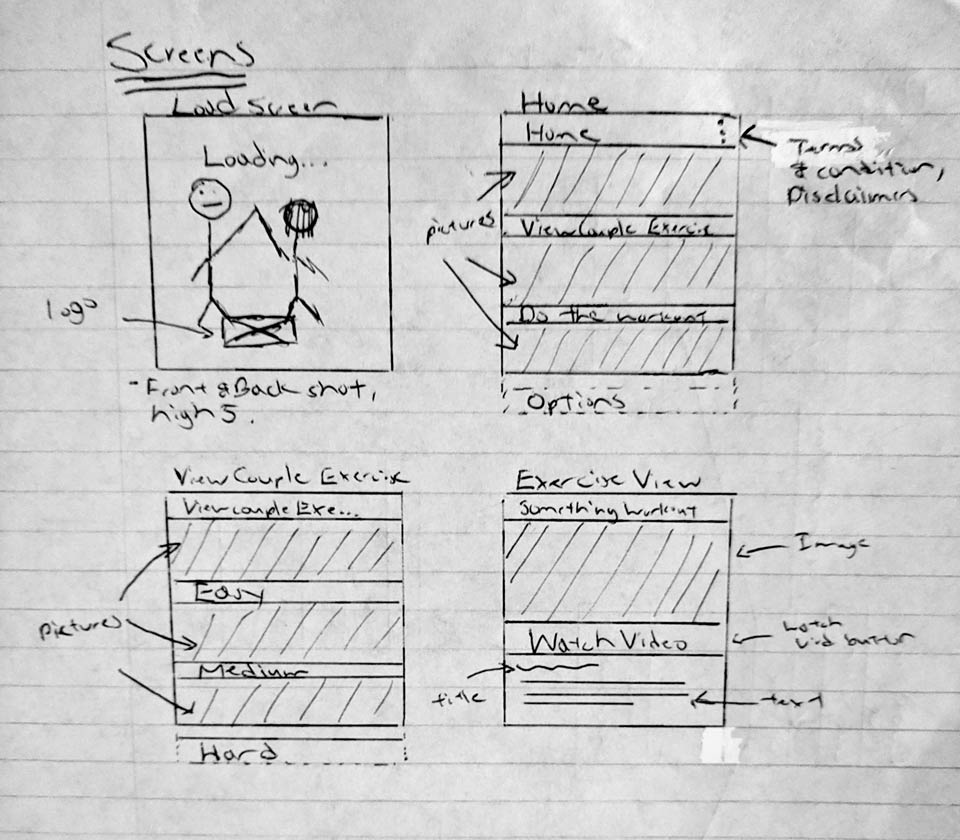 Screens
Load screen
Loading...
logo
- Front & Back shot,
high 5.
Home
Home
Terms
& condition,
Disclaimers
pictures
View Couple Exercise
Do the workout
Options
View Couple Exercise
View couple Exe...
pictures
Easy
Medium
Hard
Exercise View
Something workout
Image
Watch Video
watch
vid button
title
text